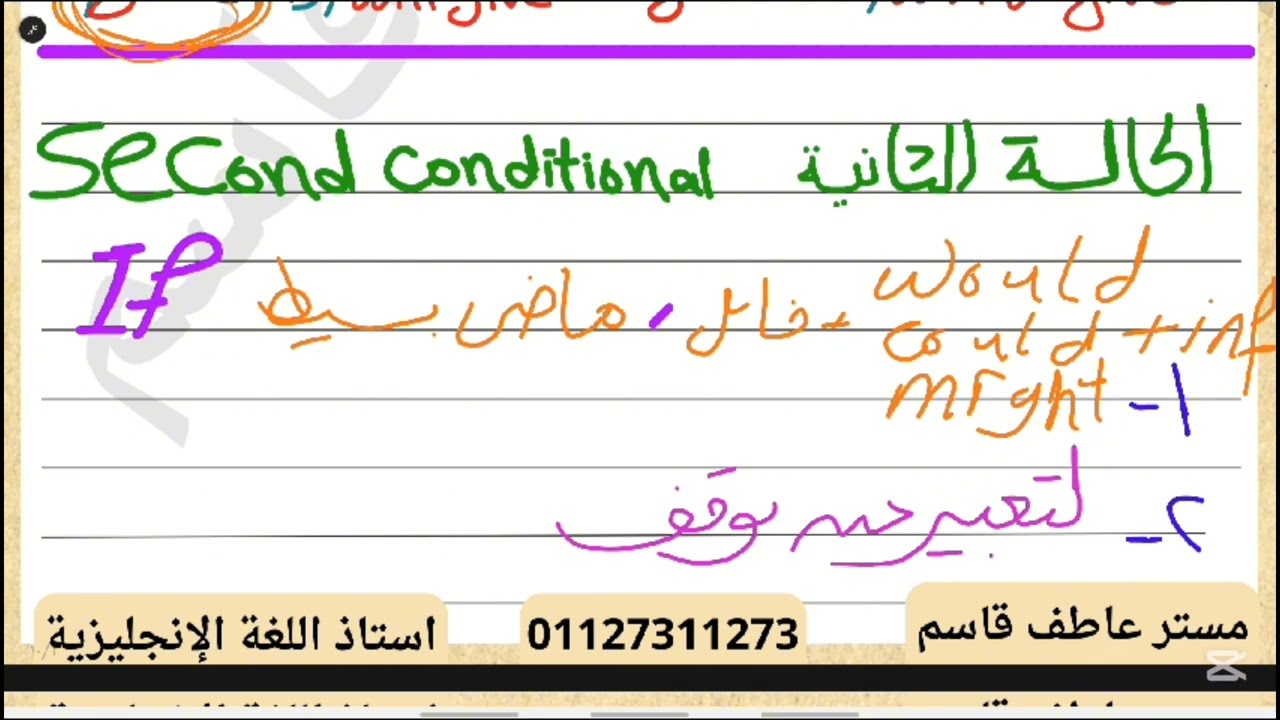 Second Conditional الحالة الثانية
If ماضى بسيط , فاعل + would could might + inf
١-
٢- لتعبير عن موقف
مستر عاطف قاسم 01127311273 استاذ اللغة الإنجليزية